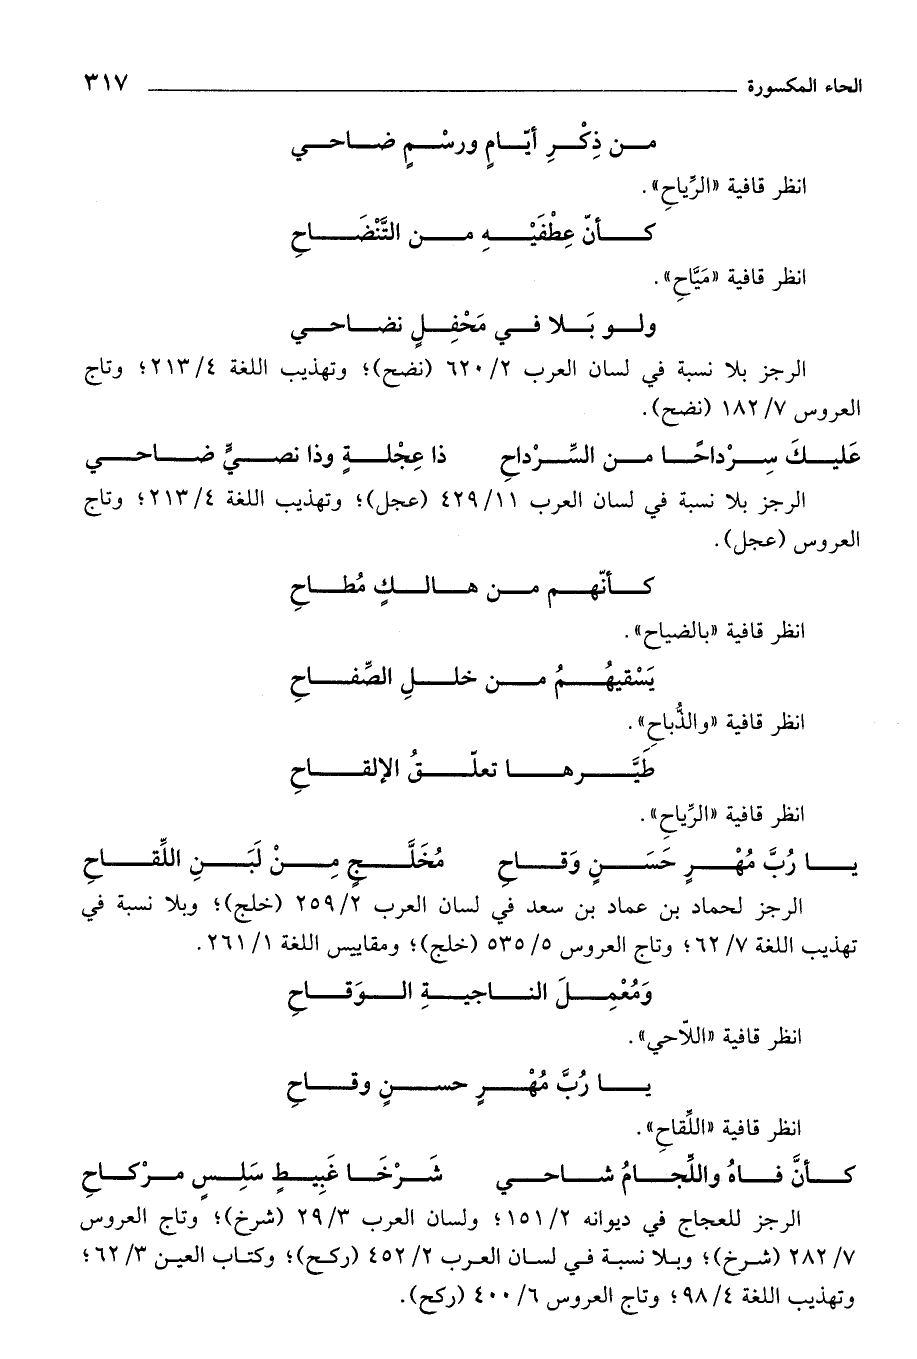 الحاء المكسورة ٣١٧
من ذِكْرِ أيّامٍ ورسْمٍ ضاحي
انظر قافية «الرِّياحِ».
كأنّ عِطْفَيْهِ من التَّنْضَاحِ
انظر قافية «مَيَّاحِ».
ولو بَلا في مَحْفِلٍ نضاحي
الرجز بلا نسبة في لسان العرب ٢/ ٦٢٠ (نضح)؛ وتهذيب اللغة ٤/ ٢١٣؛ وتاج
العروس ٧/ ١٨٢ (نضح).
عَليكَ سِرْداحًا من السِّرْداحِ ذا عِجْلةٍ وذا نصيٍّ ضاحي
الرجز بلا نسبة في لسان العرب ١١/ ٤٢٩ (عجل)؛ وتهذيب اللغة ٤/ ٢١٣؛ وتاج
العروس (عجل).
كأنّهم من هالكٍ مُطاحِ
انظر قافية «بالضياح».
يَسْقيهُمُ من خللِ الصِّفاحِ
انظر قافية «والذُّباحِ».
طَيَّرها تعلّقُ الإلقاحِ
انظر قافية «الرِّياحِ».
يا رُبَّ مُهْرٍ حَسَنٍ وَقاحِ مُخَلَّجٍ مِنْ لَبَنِ اللِّقاحِ
الرجز لحماد بن عماد بن سعد في لسان العرب ٢/ ٢٥٩ (خلج)؛ وبلا نسبة في
تهذيب اللغة ٧/ ٦٢؛ وتاج العروس ٥/ ٥٣٥ (خلج)؛ ومقاييس اللغة ١/ ٢٦١.
وَمُعْمِلَ الناجيةِ الوَقاحِ
انظر قافية «اللّاحي».
يا رُبَّ مُهْرٍ حسنٍ وقاحِ
انظر قافية «اللِّقاحِ».
كأنَّ فاهُ واللِّجامُ شاحي شَرْخَا غَبِيطٍ سَلِسٍ مرْكاحِ
الرجز للعجاج في ديوانه ٢/ ١٥١؛ ولسان العرب ٣/ ٢٩ (شرخ)؛ وتاج العروس
٧/ ٢٨٢ (شرخ)؛ وبلا نسبة في لسان العرب ٢/ ٤٥٢ (ركح)؛ وكتاب العين ٣/ ٦٢؛
وتهذيب اللغة ٤/ ٩٨؛ وتاج العروس ٦/ ٤٠٠ (ركح).